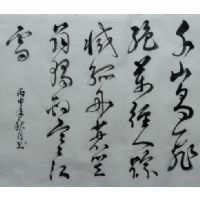 千山鳥飛
絕萬徑人蹤
滅孤舟蓑笠
翁獨釣寒江
雪
丙申年秋月书